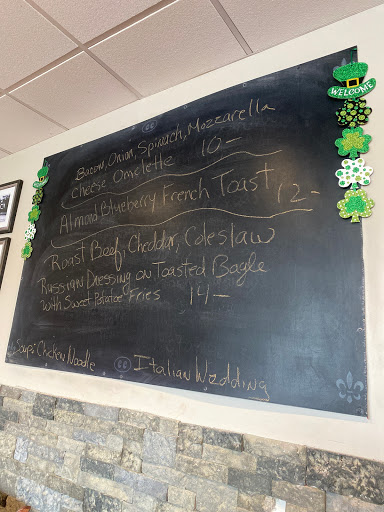 WELCOME
Bacon, Onion, Spinach, Mozzarella
cheese Omelette 10-
Almond Blueberry French Toast 12-
Roast Beef, Cheddar, Coleslaw
Russian Dressing on Toasted Bagle
with Sweet Potatoe Fries 14-
Soup: Chicken Noodle Italian Wedding